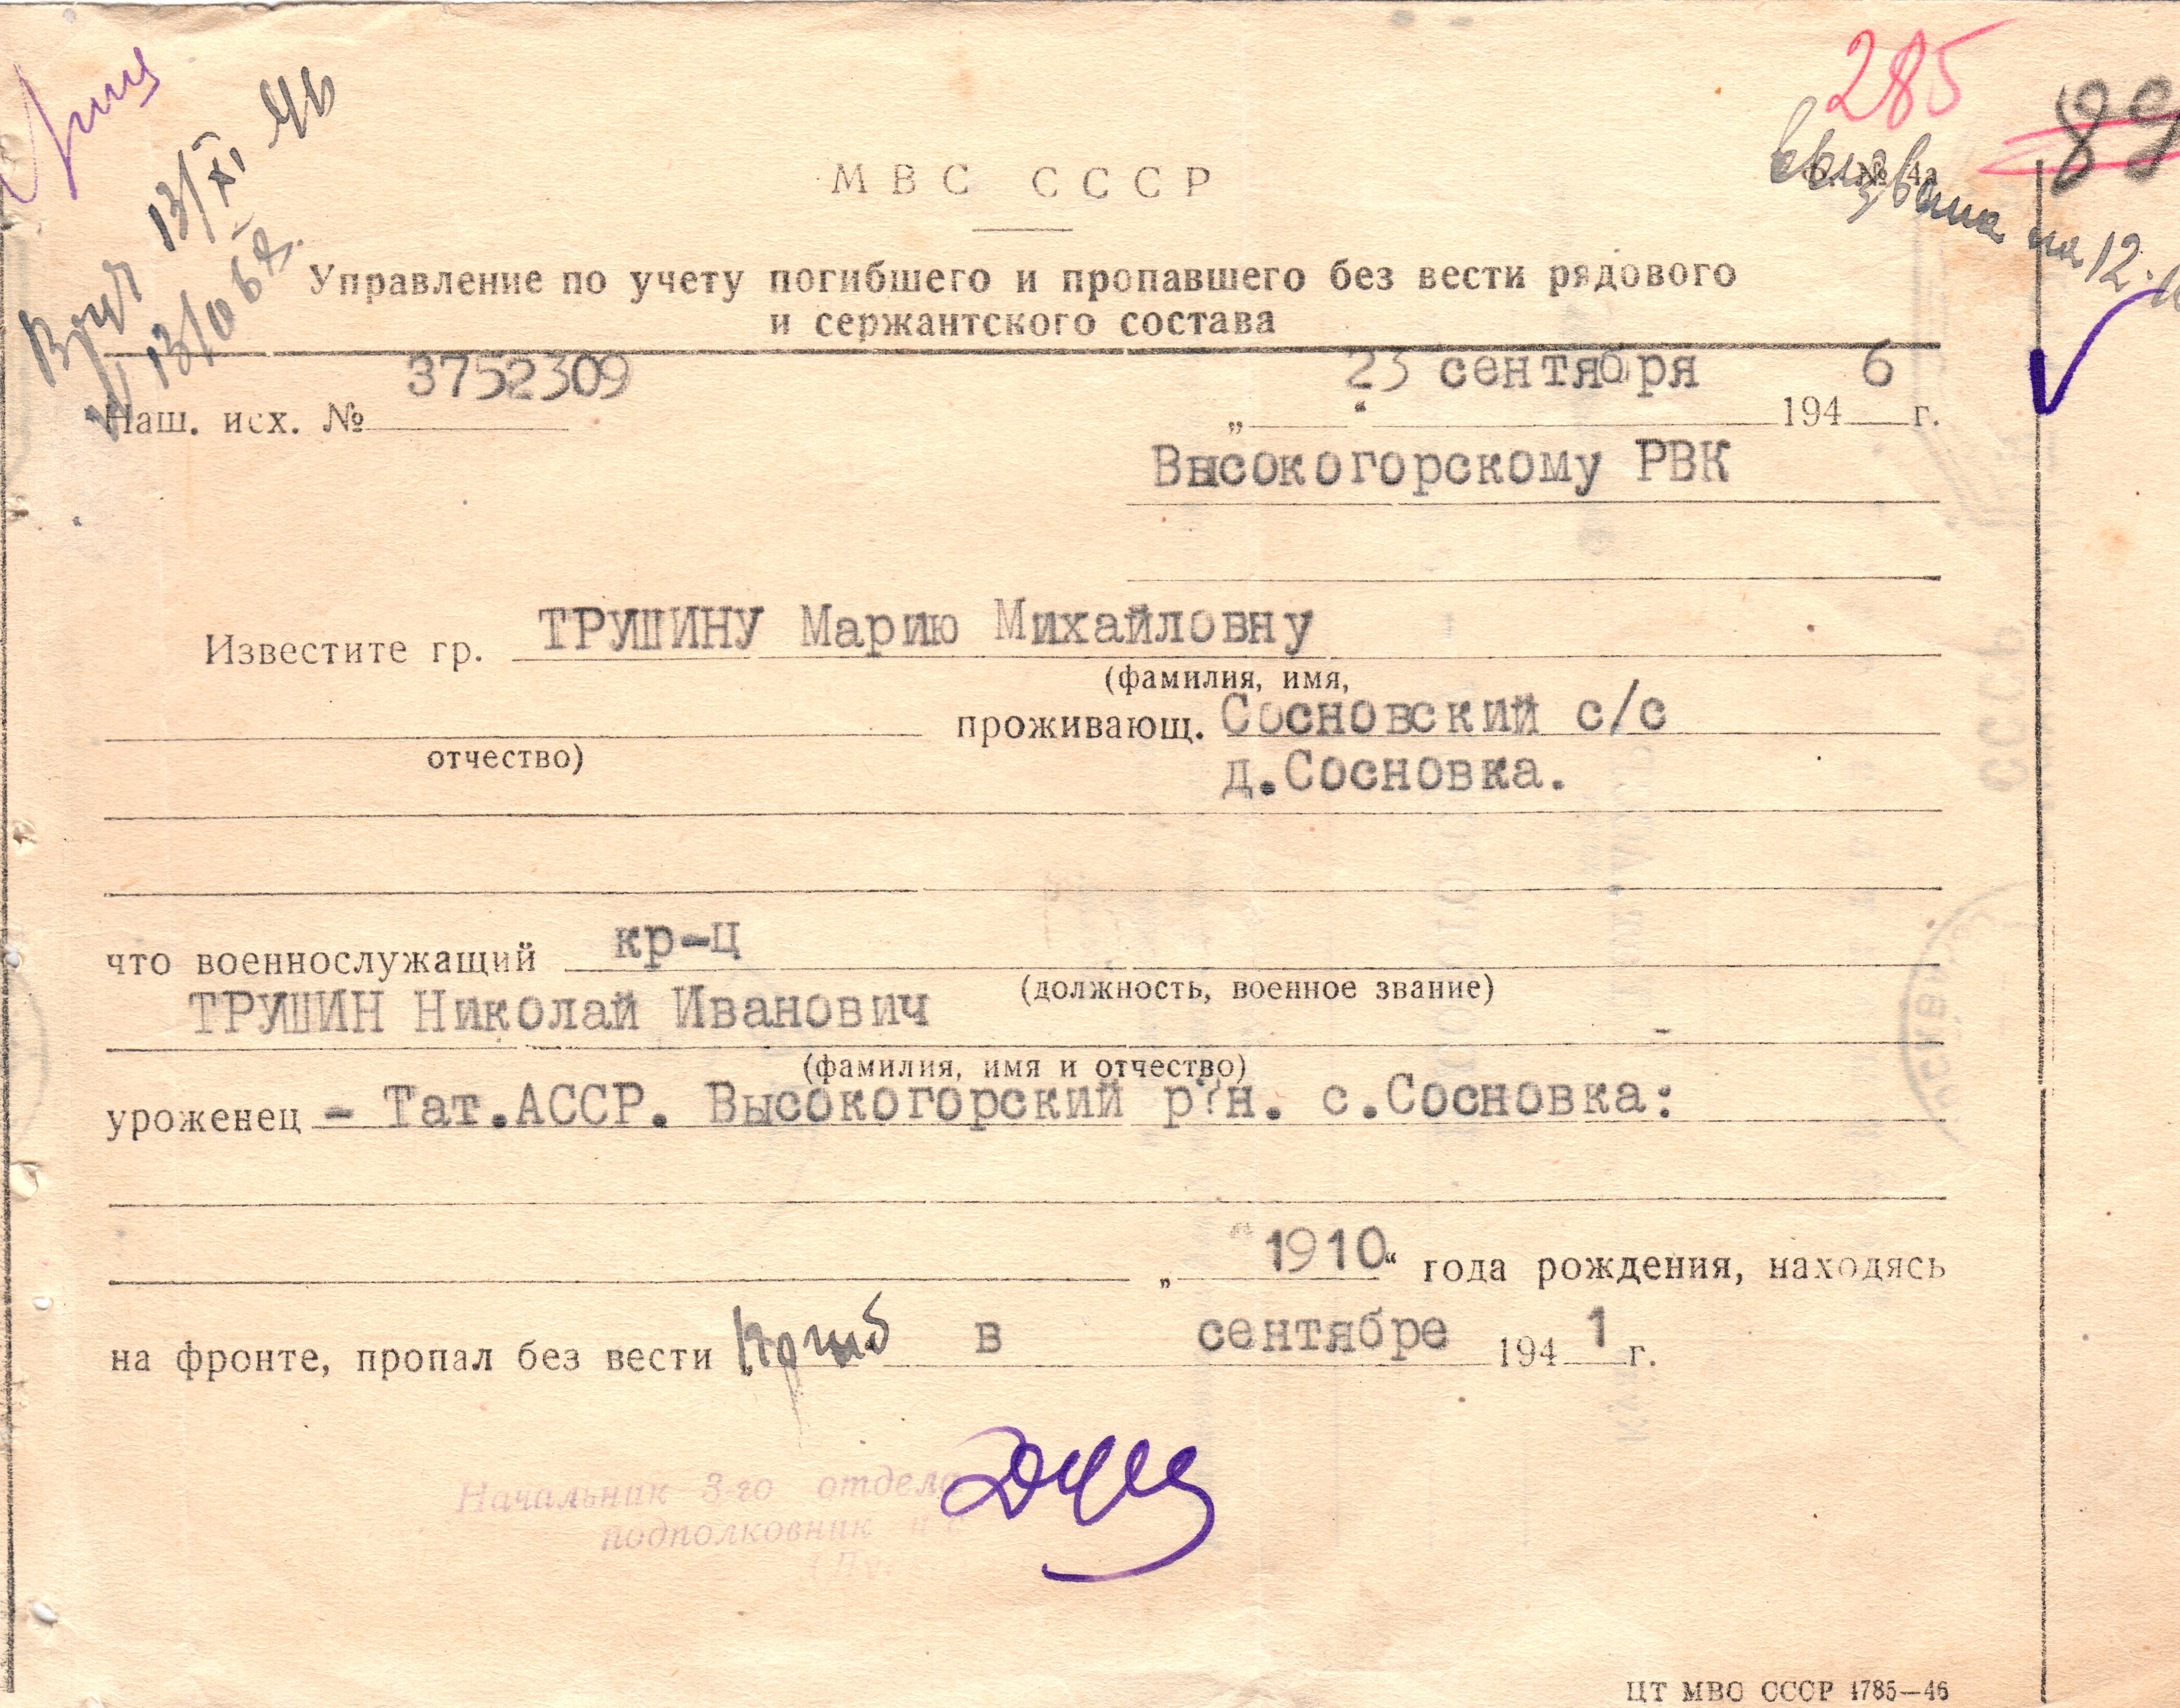 285
89
МВС СССР
Ф. № 4а
вызвана на 12.
13/XI 46
Управление по учету погибшего и пропавшего без вести рядового
и сержантского состава
3752309
23 сентября 6
Наш. исх. № „ “ 194 г.
Высокогорскому РВК
Известите гр. ТРУШИНУ Марию Михайловну
(фамилия, имя,
проживающ. Сосновский с/с
отчество)
д.Сосновка.
что военнослужащий кр-ц
(должность, военное звание)
ТРУШИН Николай Иванович
(фамилия, имя и отчество)
уроженец - Тат.АССР. Высокогорский р?н. с.Сосновка:
„ 1910 “ года рождения, находясь
на фронте, пропал без вести в сентябре 194 1 г.
Начальник 3-го отдела
подполковник
ЦТ МВС СССР 4785—46